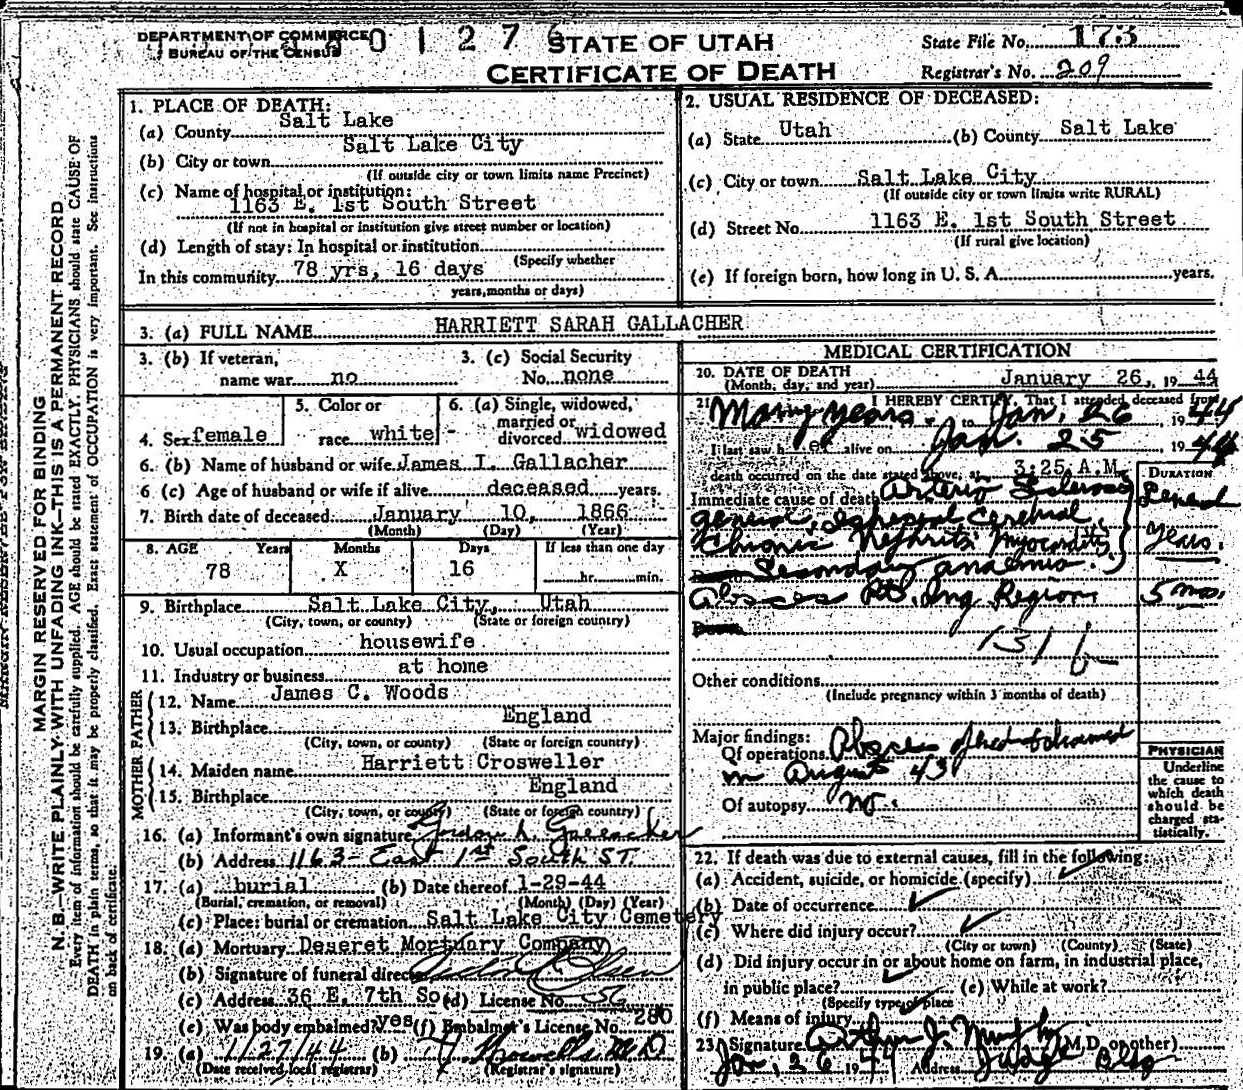 DEPARTMENT OF COMMERCE
BUREAU OF THE CENSUS
0 1 2 7 6
STATE OF UTAH
CERTIFICATE OF DEATH
State File No. 173
Registrar's No. 209
MARGIN RESERVED FOR BINDING
N. B.—WRITE PLAINLY WITH UNFADING INK—THIS IS A PERMANENT RECORD
Every item of information should be carefully supplied. AGE should be stated EXACTLY. PHYSICIANS should state CAUSE OF
DEATH in plain terms, so that it may be properly classified. Exact statement of OCCUPATION is very important. See instructions
on back of certificate.
1. PLACE OF DEATH:
(a) County Salt Lake
(b) City or town Salt Lake City
(If outside city or town limits name Precinct)
(c) Name of hospital or institution:
1163 E. 1st South Street
(If not in hospital or institution give street number or location)
(d) Length of stay: In hospital or institution
(Specify whether
In this community 78 yrs, 16 days
years, months or days)
2. USUAL RESIDENCE OF DECEASED:
(a) State Utah (b) County Salt Lake
(c) City or town Salt Lake City
(If outside city or town limits write RURAL)
(d) Street No. 1163 E. 1st South Street
(If rural give location)
(e) If foreign born, how long in U. S. A. years.
3. (a) FULL NAME HARRIETT SARAH GALLACHER
3. (b) If veteran,
name war no
3. (c) Social Security
No. none
4. Sex female
5. Color or
race white
6. (a) Single, widowed,
married or
divorced widowed
6. (b) Name of husband or wife James I. Gallacher
6 (c) Age of husband or wife if alive deceased years.
7. Birth date of deceased January 10, 1866
(Month) (Day) (Year)
8. AGE Years Months Days If less than one day
78 X 16 hr. min.
9. Birthplace Salt Lake City, Utah
(City, town, or county) (State or foreign country)
10. Usual occupation housewife
11. Industry or business at home
FATHER
12. Name James C. Woods
13. Birthplace England
(City, town, or county) (State or foreign country)
MOTHER
14. Maiden name Harriett Crosweller
15. Birthplace England
(City, town, or county) (State or foreign country)
16. (a) Informant's own signature Gallacher
(b) Address 1163- East 1st South ST.
17. (a) burial (b) Date thereof 1-29-44
(Burial, cremation, or removal) (Month) (Day) (Year)
(c) Place: burial or cremation Salt Lake City Cemetery
18. (a) Mortuary Deseret Mortuary Company
(b) Signature of funeral director
(c) Address 36 E. 7th So. (d) License No. 56
(e) Was body embalmed? yes (f) Embalmer's License No. 280
19. (a) 1/27/44 (b) M D
(Date received local registrar) (Registrar's signature)
MEDICAL CERTIFICATION
20. DATE OF DEATH
(Month, day, and year) January 26, 19 44
21. I HEREBY CERTIFY, That I attended deceased from
Many years. to Jan. 26, 19 44
I last saw her alive on Jan. 25 19 44
death occurred on the date stated above, at 3:25 A.M.
DURATION
Immediate cause of death Arterio Sclerosis
general, especial Cerebral,
Chronic Nephritis Myocarditis
Secondary anaemia.
Several
years.
Abscess Rt. Ing Region 5 mos.
131 b
Other conditions
(Include pregnancy within 3 months of death)
Major findings:
Of operations Abscess
in August 43
Of autopsy no.
PHYSICIAN
Underline
the cause to
which death
should be
charged sta-
tistically.
22. If death was due to external causes, fill in the following:
(a) Accident, suicide, or homicide (specify)
(b) Date of occurrence
(c) Where did injury occur?
(City or town) (County) (State)
(d) Did injury occur in or about home on farm, in industrial place,
in public place? (e) While at work?
(Specify type of place
(f) Means of injury
23. Signature Arthur J. Murphy (M.D. or other)
Jan, 26 19 44 Address Judge Bldg